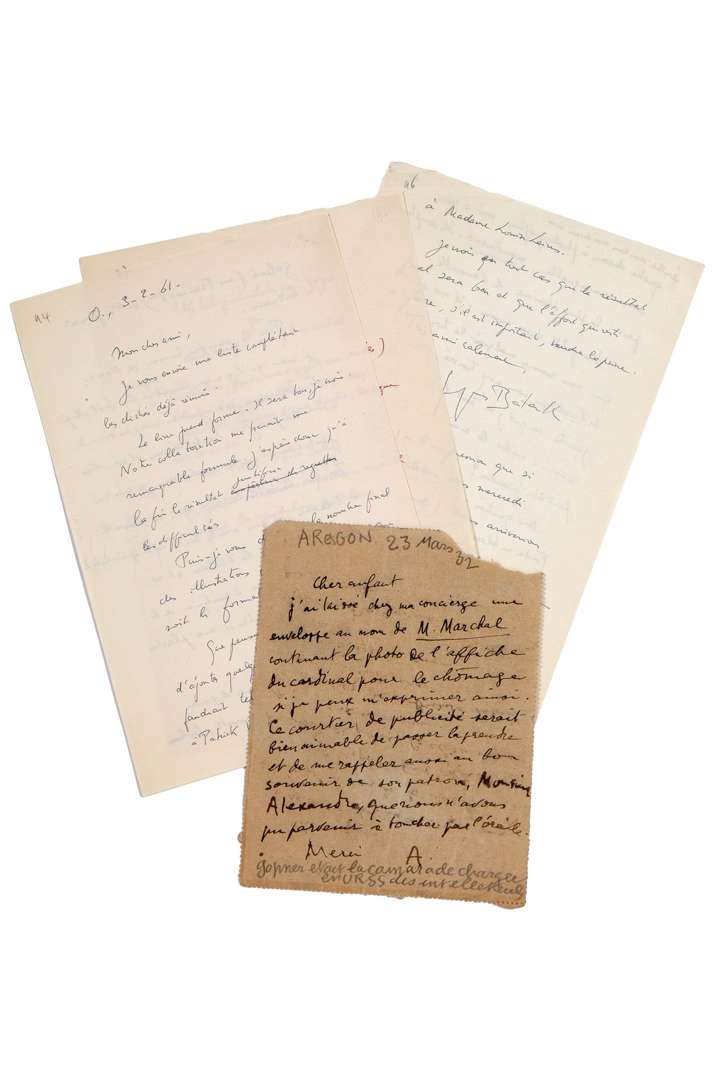 44
O., 3-2-61.
Mon cher ami,
Je vous envoie une liste complétant
les clichés déjà réunis.
Le livre prend forme. Il sera bon, je crois.
Notre collaboration me paraît une
remarquable formule. J'espère donc qu'à
la fin le résultat justifiera
les difficultés
Puis-je vous la marche final
des illustrations
soit le forma
Que pens
d'ajouter quelq
faudrait te
à Patrick
46
à Madame Louise Leiris.
Je crois en tout cas que le résultat
sera bon et que l'effort qui
re, s'il est important, vaudra la peine.
que si
mercredi
ARAGON 23 Mars 32
Cher enfant
j'ai laissé chez ma concierge une
enveloppe au nom de M. Marchal
contenant la photo de l'affiche
du cardinal pour le chômage
si je peux m'exprimer ainsi.
Ce courtier de publicité serait
bien aimable de passer la prendre
et de me rappeler aussi au bon
souvenir de son patron, Monsieur
Alexandre, que nous n'avons
pu parvenir à toucher par l'oreille.
Merci A.
Gopner était la camarade chargée
en URSS des intellectuels